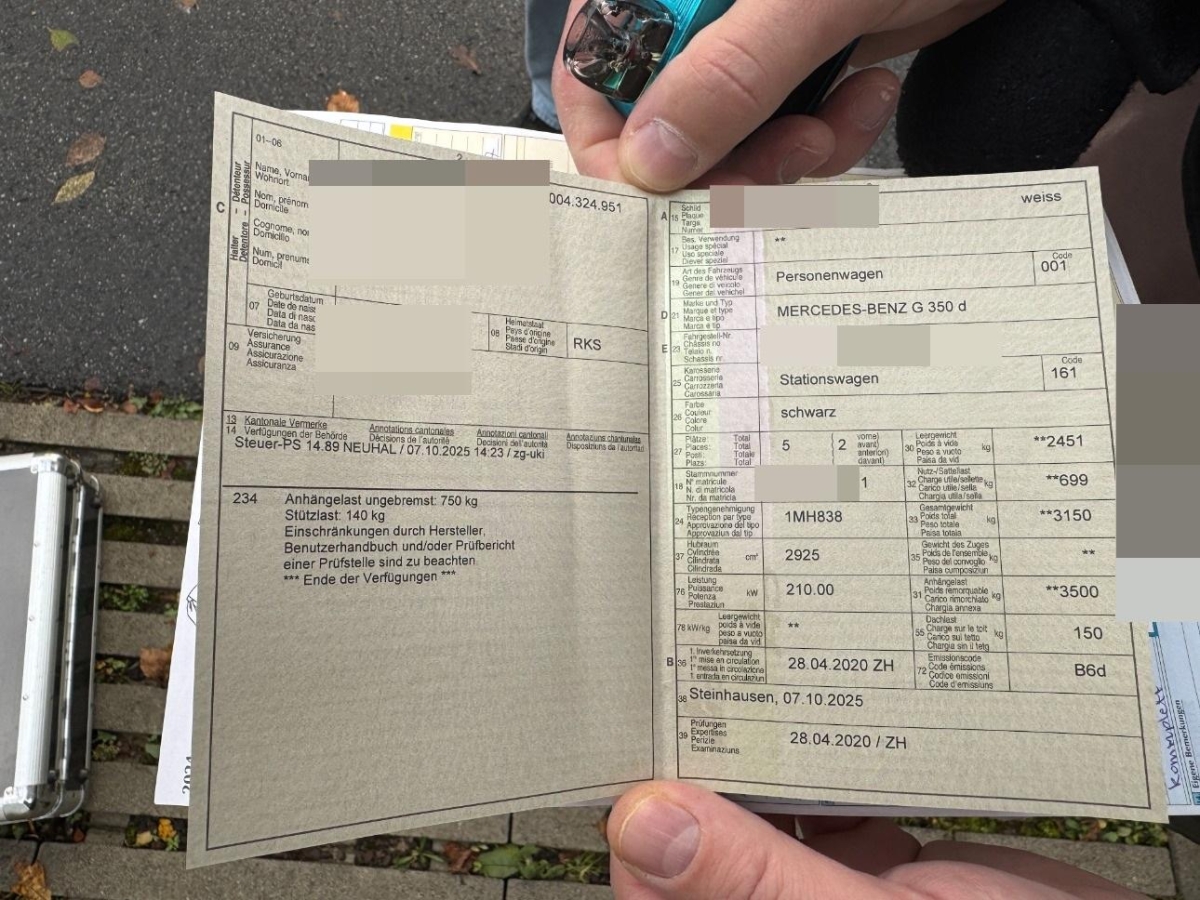 01-06
004.324.951
C
Halter – Détenteur
Detentore – Possessur
Name, Vorna
Wohnort
Nom, prénom
Domicile
Cognome, no
Domicilio
Num, prenum
Domicil
07
Geburtsdatum
Date de nais
Data di nasc
Data da nas
08
Heimatstaat
Pays d'origine
Paese d'origine
Stadi d'origin
RKS
09
Versicherung
Assurance
Assicurazione
Assicuranza
13 Kantonale Vermerke Annotations cantonales Annotazioni cantonali Annotaziuns chantunalas
14 Verfügungen der Behörde Décisions de l'autorité Decisioni dell'autorità Disposiziuns da l'autoritad
Steuer-PS 14.89 NEUHAL / 07.10.2025 14:23 / zg-uki
234 Anhängelast ungebremst: 750 kg
Stützlast: 140 kg
Einschränkungen durch Hersteller,
Benutzerhandbuch und/oder Prüfbericht
einer Prüfstelle sind zu beachten
*** Ende der Verfügungen ***
A 15
Schild
Plaque
Targa
Numer
weiss
17
Bes. Verwendung
Usage spécial
Uso speciale
Diever spezial
**
19
Art des Fahrzeugs
Genre de véhicule
Genere di veicolo
Gener dal vehichel
Personenwagen
Code
001
D 21
Marke und Typ
Marque et type
Marca e tipo
Marca e tip
MERCEDES-BENZ G 350 d
E 23
Fahrgestell-Nr.
Châssis no
Telaio n.
Schassis nr.
25
Karosserie
Carrosserie
Carrozzeria
Carossaria
Stationswagen
Code
161
26
Farbe
Couleur
Colore
Colur
schwarz
27
Plätze: Total
Places: Total
Posti: Totale
Plazs: Total
5 { 2
vorne)
avant)
anteriori)
davant)
30
Leergewicht
Poids à vide
Peso a vuoto
Paisa da vid
kg
**2451
18
Stammnummer
N° matricule
N. di matricola
Nr. da matricla
1
32
Nutz-/Sattellast
Charge utile/sellette
Carico utile/sella
Chargia utila/sella
kg
**699
24
Typengenehmigung
Réception par type
Approvazione del tipo
Approvaziun dal tip
1MH838
33
Gesamtgewicht
Poids total
Peso totale
Paisa totala
kg
**3150
37
Hubraum
Cylindrée
Cilindrata
Cilindrada
cm³
2925
35
Gewicht des Zuges
Poids de l'ensemble
Peso del convoglio
Paisa cumposiziun
kg
**
76
Leistung
Puissance
Potenza
Prestaziun
kW
210.00
31
Anhängelast
Poids remorquable
Carico rimorchiato
Chargia annexa
kg
**3500
78 kW/kg
Leergewicht
poids à vide
peso a vuoto
paisa da vid
**
55
Dachlast
Charge sur le toit
Carico sul tetto
Chargia sin il tetg
kg
150
B 36
1. Inverkehrsetzung
1re mise en circulation
1a messa in circolazione
1. entrada en circulaziun
28.04.2020 ZH
72
Emissionscode
Code émissions
Codice emissioni
Code d'emissiuns
B6d
38 Steinhausen, 07.10.2025
39
Prüfungen
Expertises
Perizie
Examinaziuns
28.04.2020 / ZH
komplett
Eigene Bemerkungen
2024